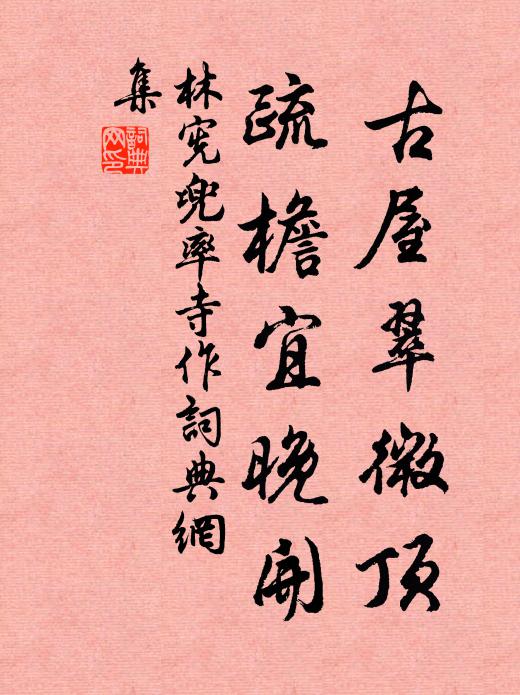 古屋翠微頂
疏檐宜晚開
林宪兜率寺作詞典網
集
詞典網印